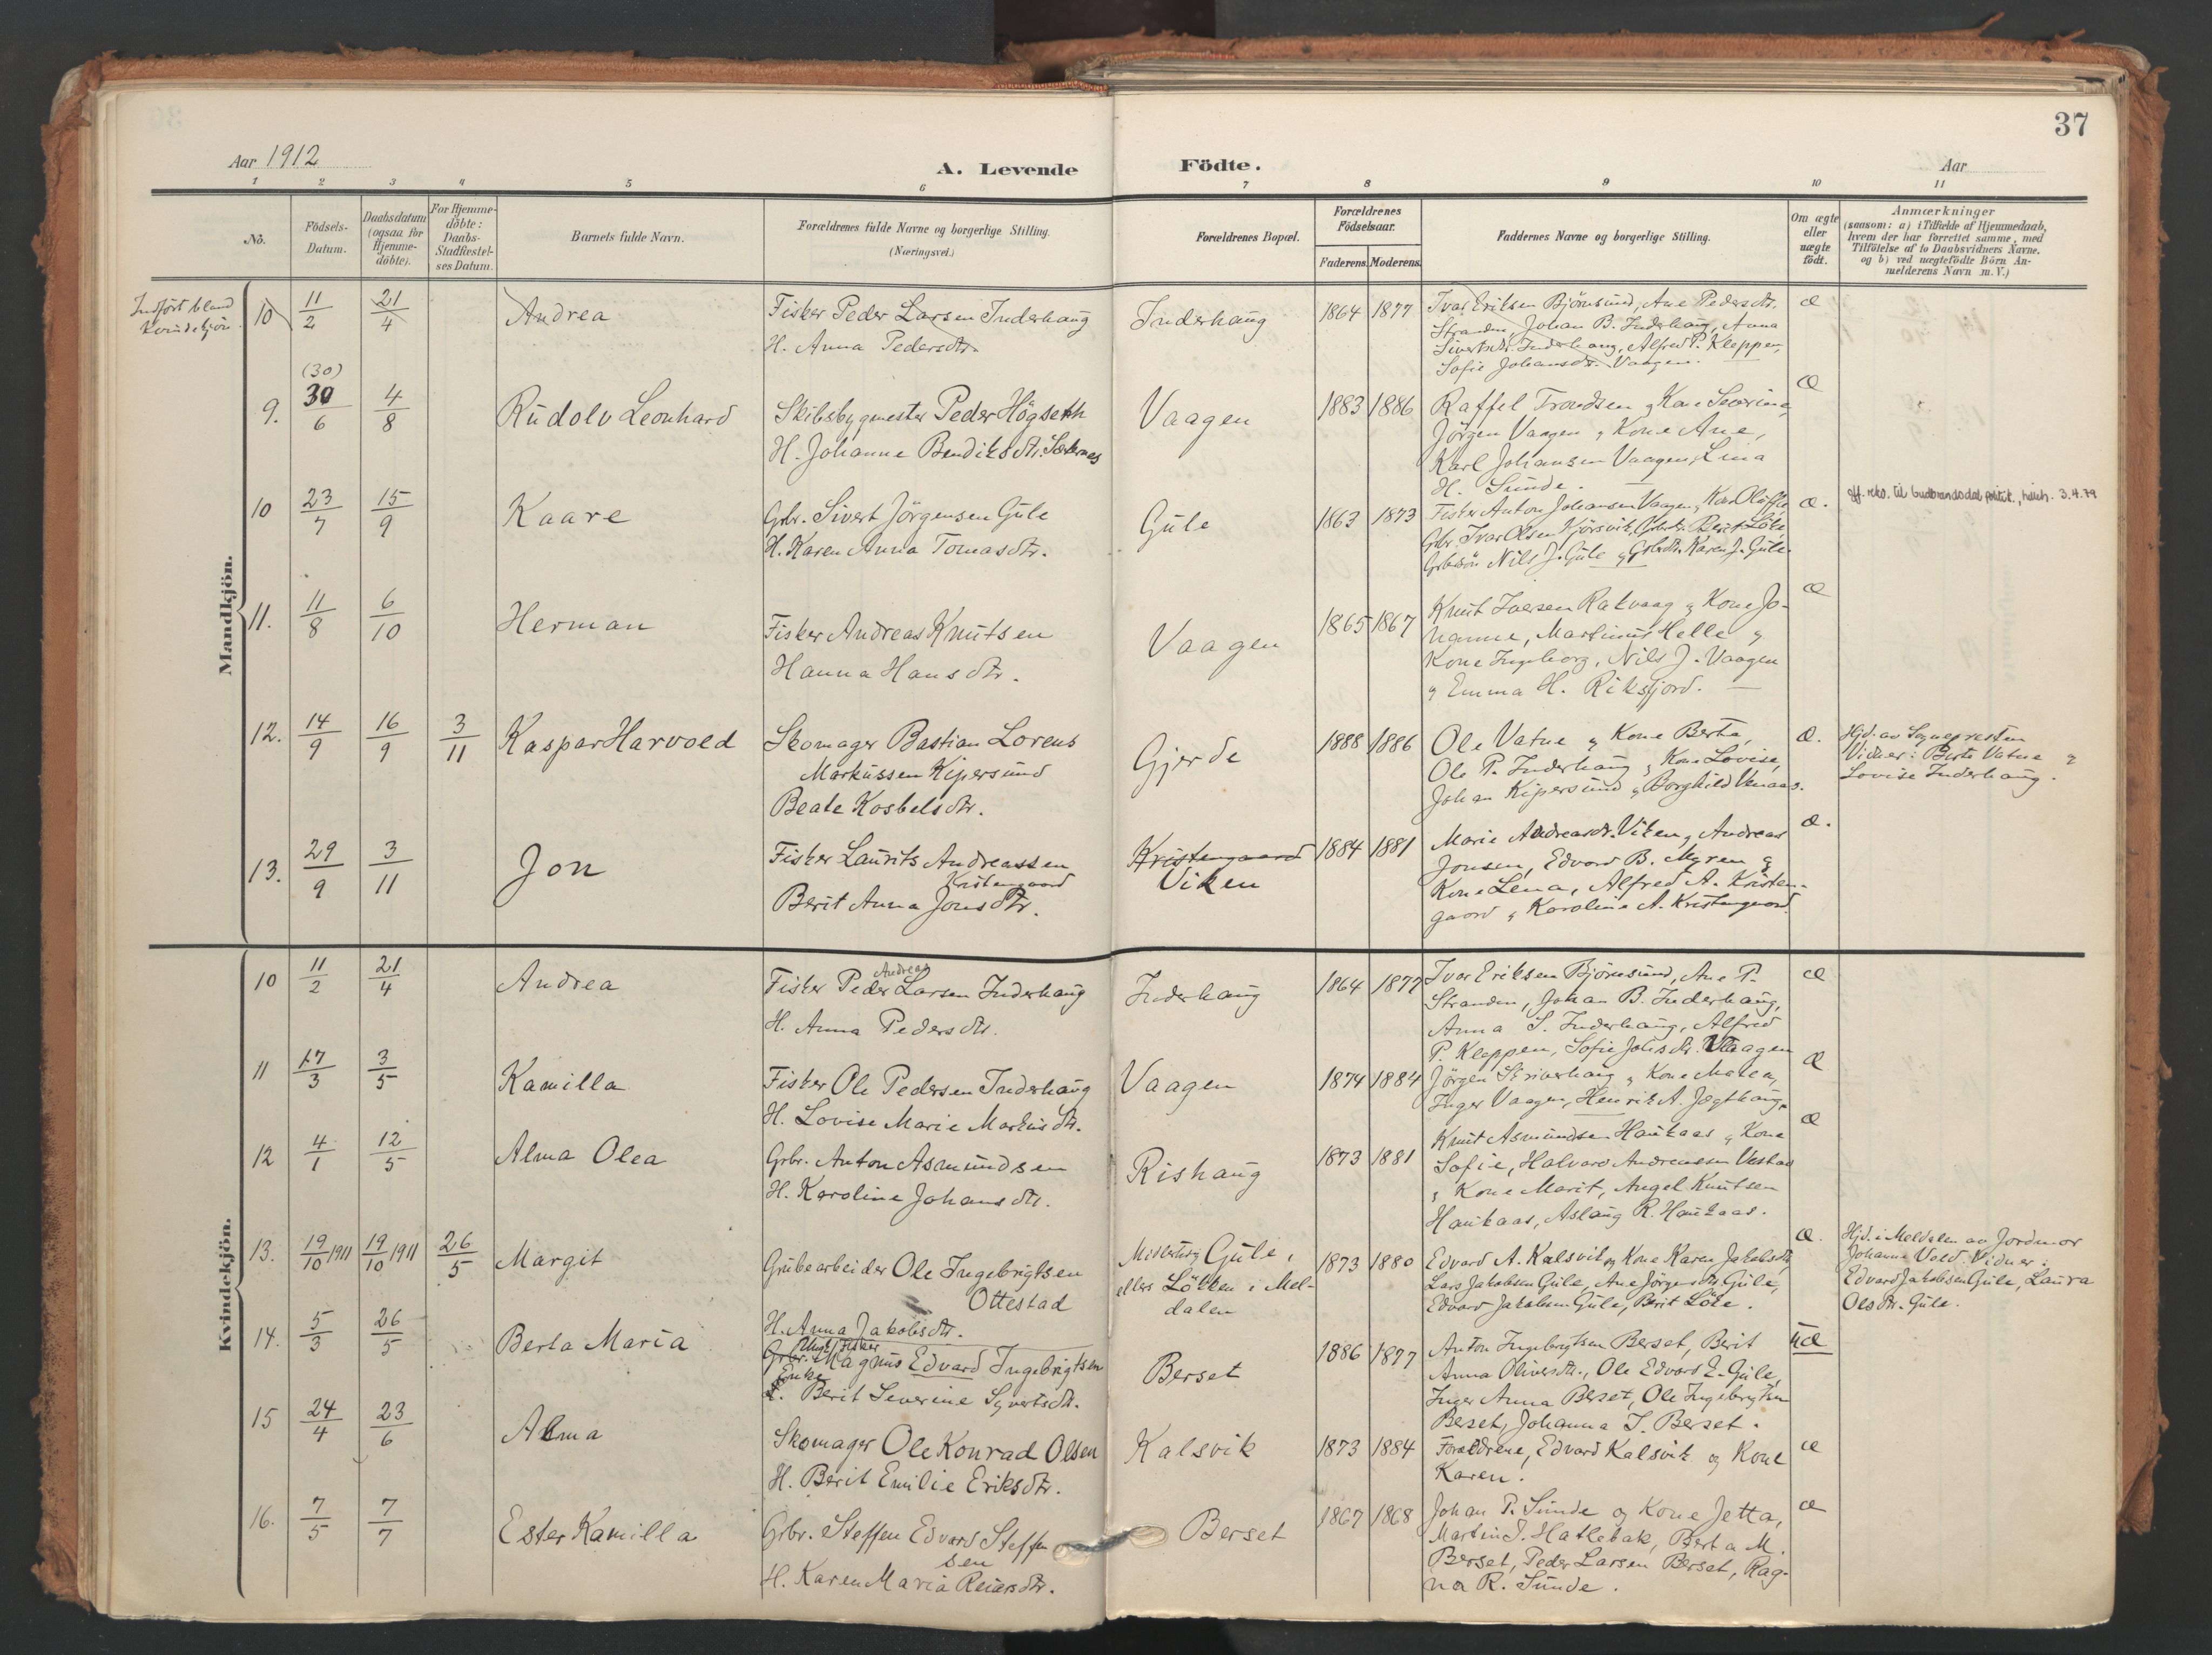 37
Aar 1912
A. Levende Födte.
Aar
1 2 3 4 5 6 7 8 9 10 11
No.
Födsels-Datum.
Daabsdatum (ogsaa for Hjemme-döbte).
For Hjemme-döbte: Daabs-Stadfæstel-ses Datum.
Barnets fulde Navn.
Forældrenes fulde Navne og borgerlige Stilling. (Næringsvei.)
Forældrenes Bopæl.
Forældrenes Födselsaar.
Faderens. Moderens.
Faddernes Navne og borgerlige Stilling.
Om ægte eller uægte födt.
Anmærkninger
(saasom: a) i Tilfælde af Hjemmedaab, hvem der har forrettet samme, med Tilföielse af to Daabsvidners Navne. og b) ved uægtefödte Börn An-melderens Navn m.V.)
Mandkjön.
Indfört bland
Kvindekjön.
10 11/2 21/4 Andrea
Fisker Peder Larsen Inderhaug
H. Anna Pedersdtr.
Inderhaug 1864 1877
Ivar Eriksen Björnsund, Ane Pedersdtr.
Stranden, Johan B. Inderhaug, Anna
Sivertsdtr. Inderhaug, Alfred P. Kleppen,
Sofie Johansdtr. Vaagen.
æ
9. (30) 30/6 4/8 Rudolv Leonhard
Skibsbygmester Peder Högseth
H. Johanne Bendiksdtr.
Vaagen 1883 1886
Raffel Trondsen og Kone Severine,
Jörgen Vaagen og Kone Ane,
Karl Johansen Vaagen, Lina
H. Sunde.
æ
10 23/7 15/9 Kaare
Grbr. Sivert Jörgensen Gule
H. Karen Anna Tomasdtr.
Gule 1863 1873
Fisker Anton Johansen Vaagen, Kone Oluffa,
Grbr. Ivar Olsen Kjörsvik, Berit Löke
Grbrsön Nils J. Gule og Grbrdtr. Karen J. Gule.
æ.
til Gudbrandsdal politik. 3.4.79
11. 11/8 6/10 Herman
Fisker Andreas Knutsen
Hanna Hansdtr.
Vaagen 1865 1867
Knut Iversen Rakvaag og Kone Jo-
hanne, Martinus Helle og
Kone Ingeborg, Nils J. Vaagen
og Emma H. Riksfjord.
æ
12. 14/9 16/9 3/11 Kaspar Harvold
Skomager Bastian Lorens
Markussen Kipersund
Beate Kosbelsdtr.
Gjerde 1888 1886
Ole Vatne og Kone Berta,
Ole P. Inderhaug og Kone Lovise,
Johan Kipersund og Borghild Venaas.
æ.
Hjd. av Sognepresten
Vidner: Berte Vatne og
Lovise Inderhaug.
13. 29/9 3/11 Jon
Fisker Laurits Andreassen
Kristengaard
Berit Anna Jonsdtr.
Kristengaard
Viken
1884 1881
Marie Andreasdtr. Viken, Andreas
Jonsen, Edvard B. Myren og
Kone Lena, Alfred A. Kristen-
gaard og Karoline A. Kristengaard.
æ.
Kvindekjön.
10 11/2 21/4 Andrea
Andreas
Fisker Peder Larsen Inderhaug
H. Anna Pedersdtr.
Inderhaug 1864 1877
Ivar Eriksen Björnsund, Ane P.
Stranden, Johan B. Inderhaug,
Anna S. Inderhaug, Alfred
P. Kleppen, Sofie Johsdtr. Vaagen
æ
11 17/3 3/5 Kamilla
Fisker Ole Pedersen Inderhaug
H. Lovise Marie Markusdtr.
Vaagen 1874 1884
Jörgen Skriverhaug og Kone Malea,
Inger Vaagen, Henrik A. Jægthaug.
æ
12 4/1 12/5 Alma Olea
Grbr. Anton Asmundsen
H. Karoline Johansdtr.
Rishaug 1873 1881
Knut Asmundsen Haukaas og Kone
Sofie, Halvard Andreassen Vestad
og Kone Marit, Angel Knutsen
Haukaas, Aslaug R. Haukaas.
æ
13. 19/10 1911 19/10 1911 26/5 Margit
Grubearbeider Ole Ingebrigtsen
Ottestad
H. Anna Jakobsdtr.
Gule,
ellers Lökken i Mel-
dalen
1873 1880
Edvard A. Kalsvik og Kone Karen Jakobsdtr.
Lars Jakobsen Gule, Ane Jörgensdtr. Gule,
Edvard Jakobsen Gule, Berit Löke.
æ.
Hjd. i Meldalen av Jordmor
Johanna Vold. Vidner:
Edvard Jakobsen Gule, Laura
Olsdtr. Gule.
14. 5/3 26/5 Berta Maria
Ungk. Fisker
Grbr. Magnus Edvard Ingebrigtsen
Enke
Berit Severine Syvertsdtr.
Berset 1886 1877
Anton Ingebrigtsen Berset, Berit
Anna Oliversdtr., Ole Edvard E. Gule,
Inger Anna Berset, Ole Ingebrigtsen
Berset, Johanna S. Berset.
uæ
15 24/4 23/6 Alma
Skomager Ole Konrad Olsen
H. Berit Emilie Eriksdtr.
Kalsvik 1873 1884
Forældrene, Edvard Kalsvik og Kone
Karen.
æ
16. 7/5 7/7 Ester Kamilla
Grbr. Steffen Edvard Steffen
sen
H. Karen Maria Reiersdtr.
Berset 1867 1868
Johan P. Sunde og Kone Jetta,
Martin J. Hatlebak, Berta M.
Berset, Peder Larsen Berset, Rag-
na R. Sunde.
æ